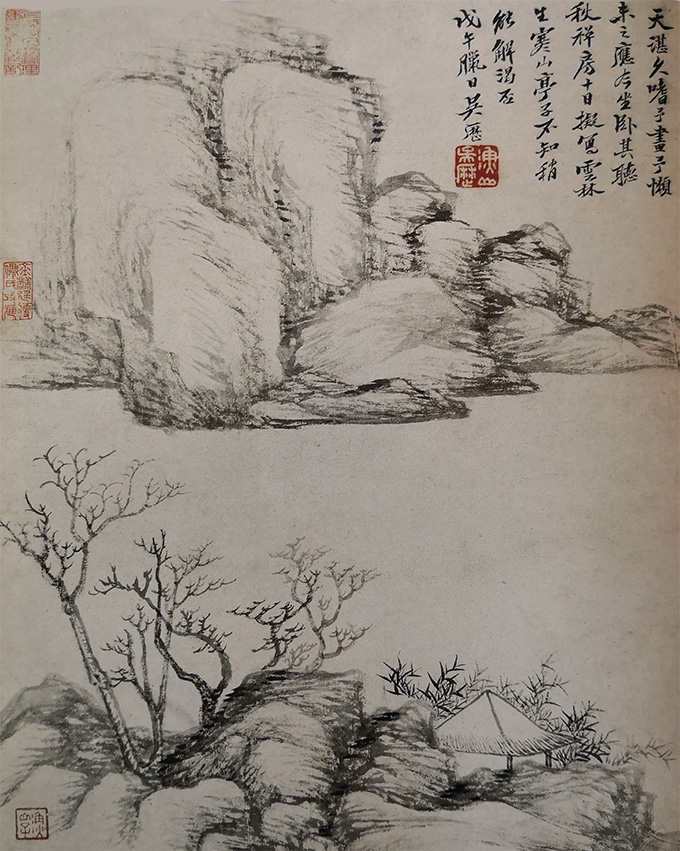 天湛久嗜予畫予懶
未之應今坐卧其聽
秋禪房十日擬寫雲林
生寒山亭子不知稍
能解渴否
戊午臘日吳歷
漁山
吳歷